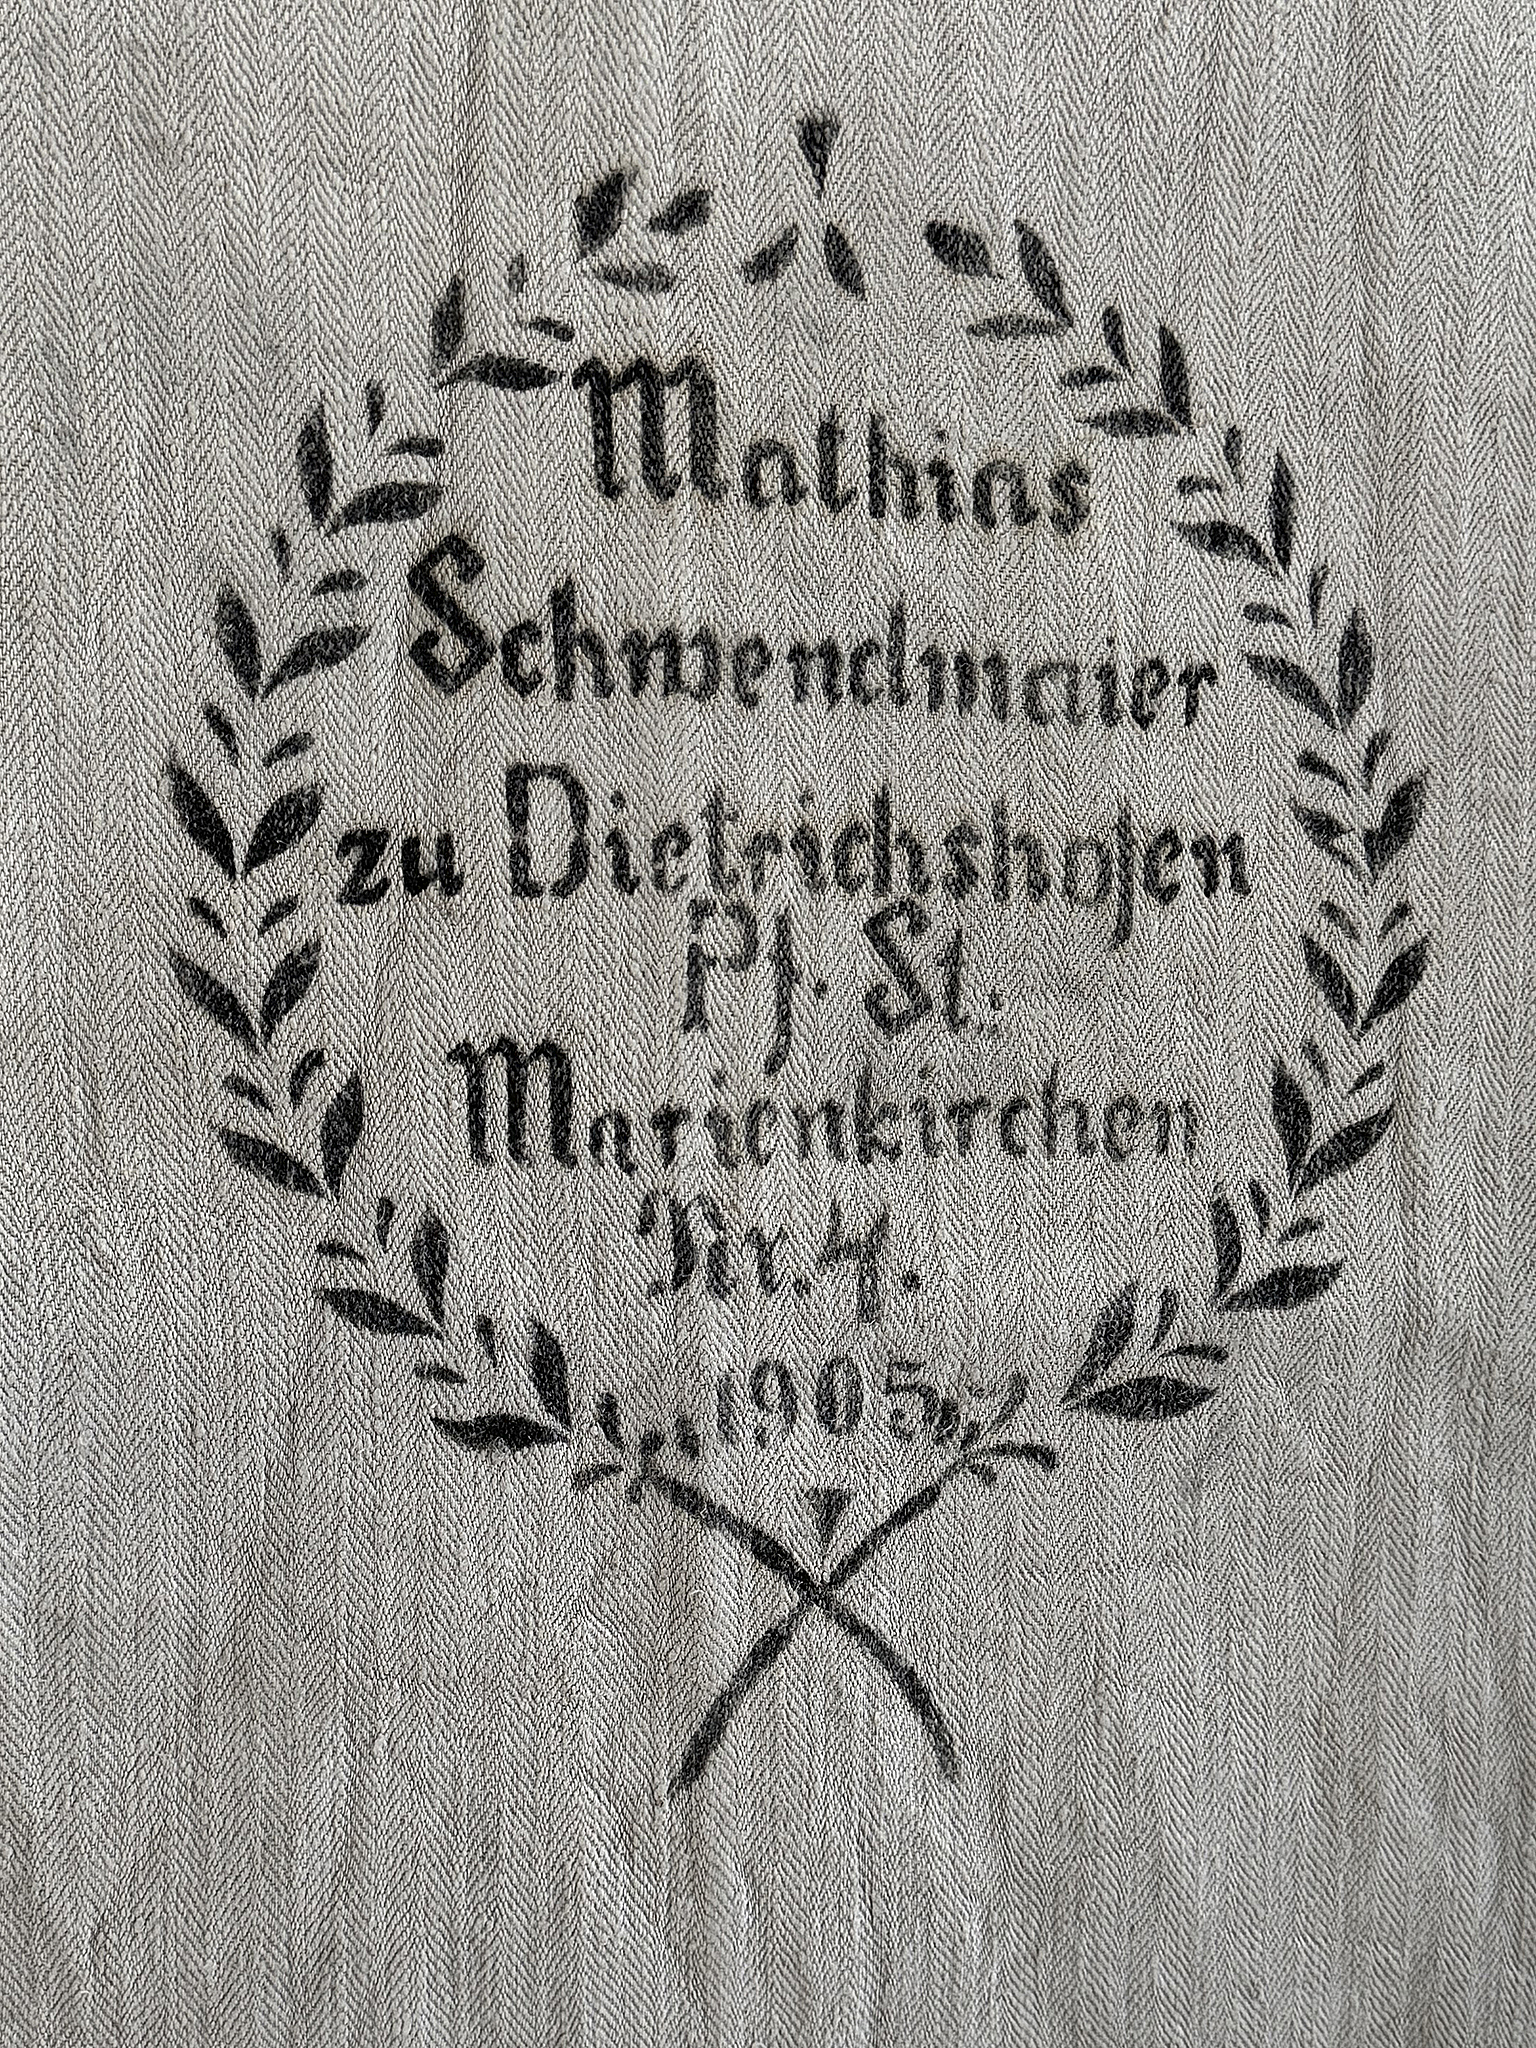 Mathias
Schwendmaier
zu Dietrichshofen
Pf. St.
Marienkirchen
Nr. 4.
1905